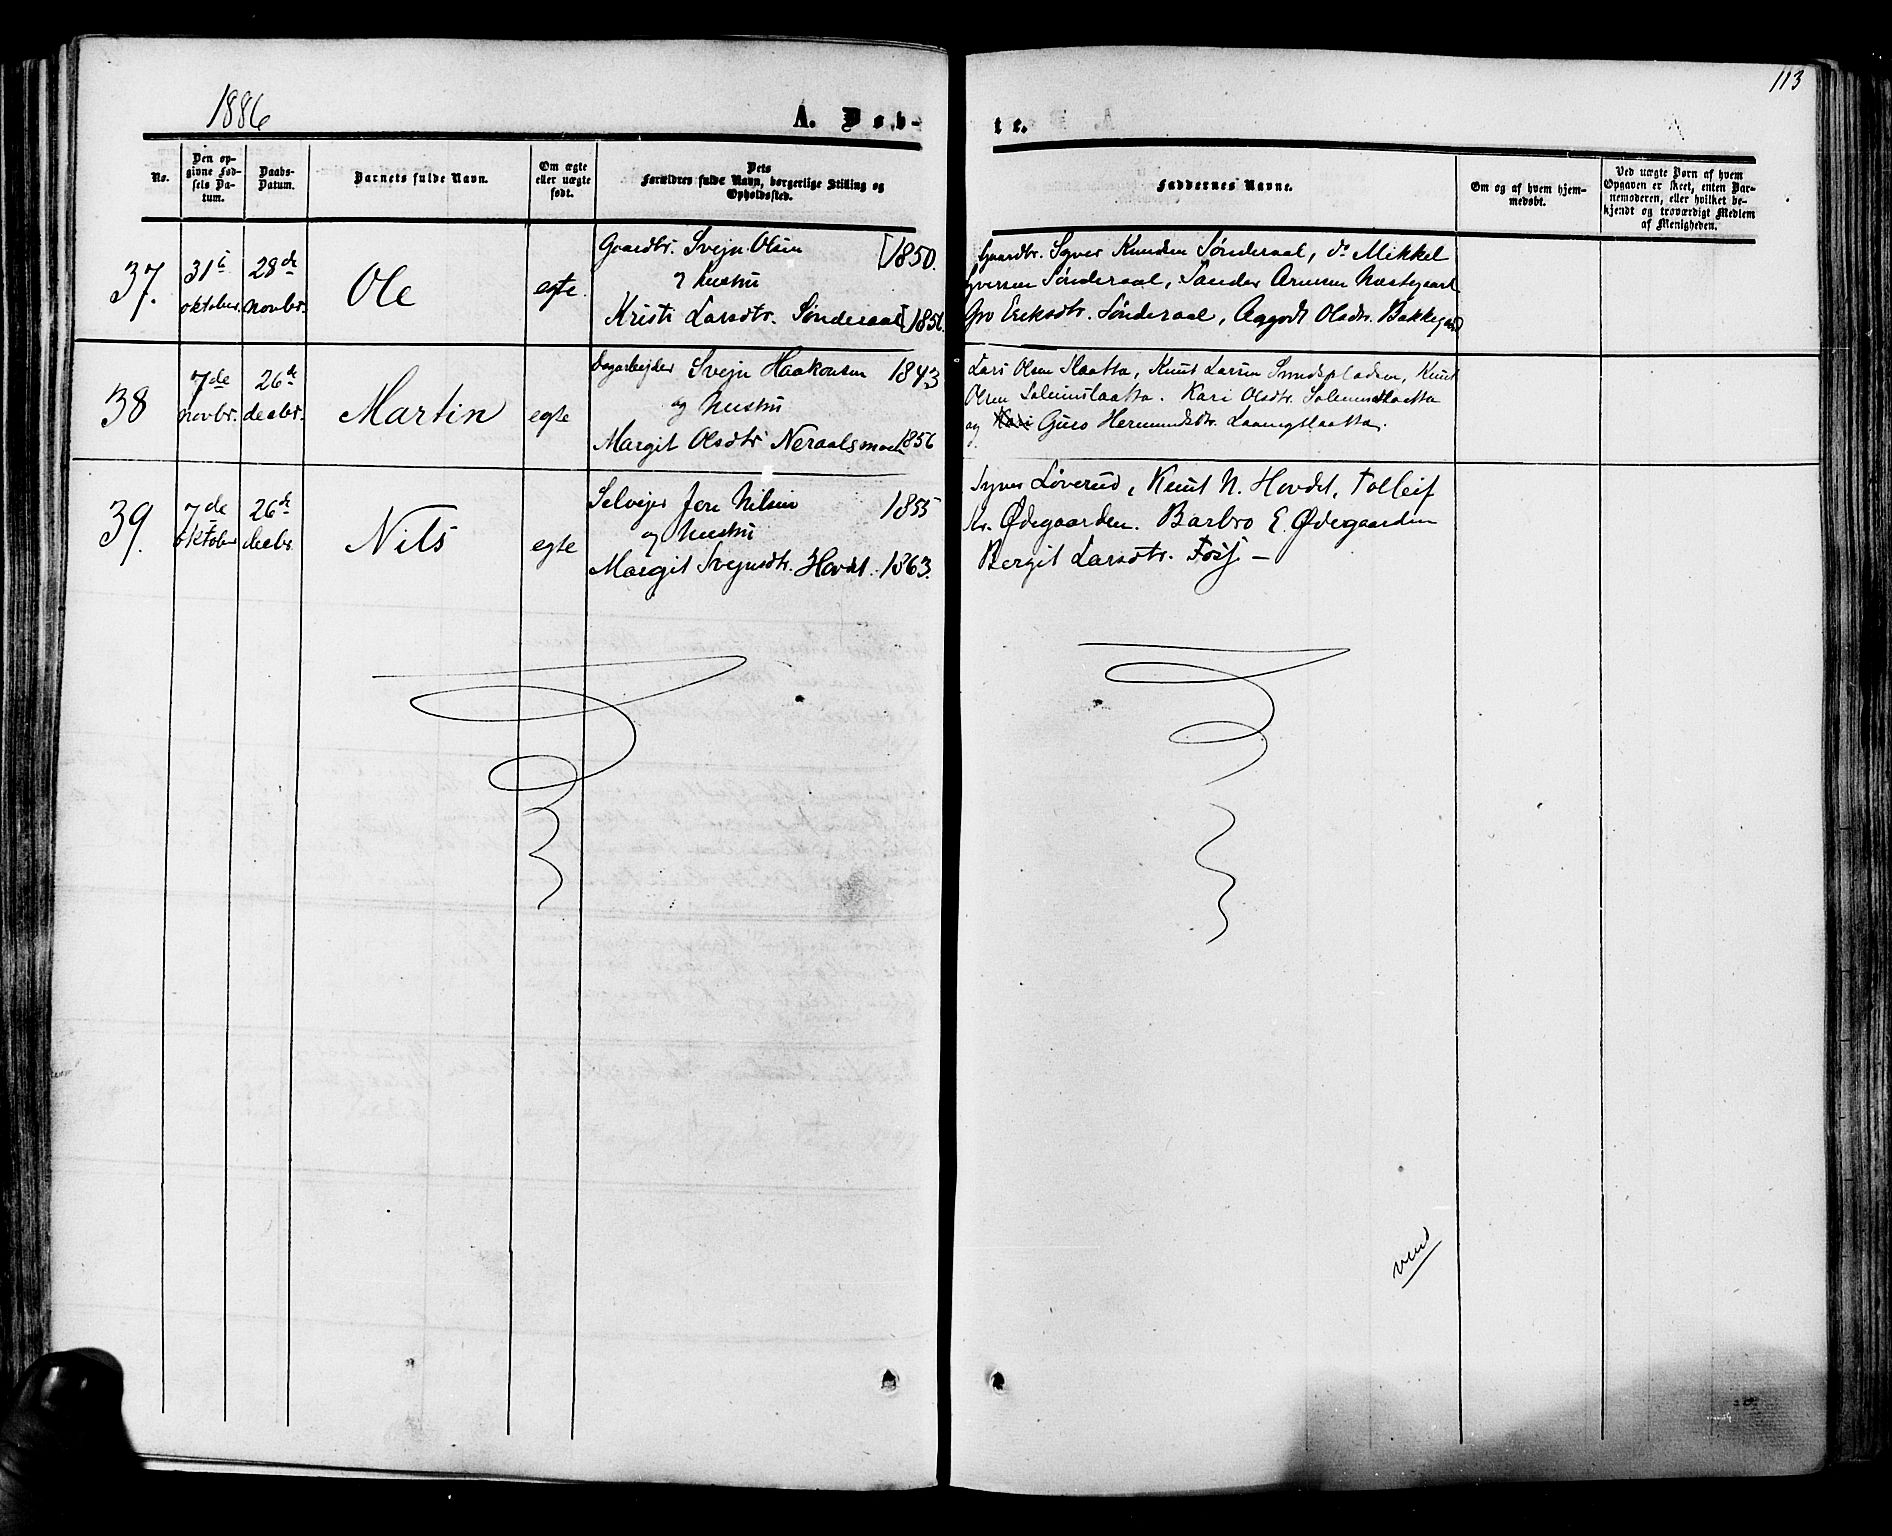 1886
113
A. Døb-
te.
No.
Den op-
givne Fød-
sels Da-
tum.
Daabs-
Datum.
Barnets fulde Navn.
Om ægte
eller uægte
født.
Dets
Forældres fulde Navn, borgerlige Stilling og
Opholdssted.
Faddernes Navne.
Om og af hvem hjem-
medøbt.
Ved uægte Børn af hvem
Opgaven er skeet, enten Bar-
nemoderen, eller hvilket be-
kjendt og troværdigt Medlem
af Menigheden.
37.
31te
oktober
28de
novbr.
Ole
egte.
Gaardbr. Svejn Olsen [1850.
& hustru
Kristi Larsdtr. Sønderaal
Gaardbr. Syver Knudsen Sønderaal, do Mikkel
Syversen Sønderaal, Sander Arnesen Næstegaard
Gro Eriksdtr. Sønderaal, Aagodt Olsdtr. Bakkegaard
38
7de
novbr.
26de
decbr.
Martin
egte
Dagarbejder Svejn Haakonsen 1843
og hustru
Margit Olsdtr Neraalsmoen 1856
Lars Olsen Slaatta, Knut Larsen Sundspladsen, Knut
Olsen Solemslaatta. Kari Olsdtr. Solemslaatta
og Kari Guro Hermundsdtr.
39.
7de
oktober
26de
decbr.
Nils
egte
Selvejer Jon Nilsen 1855
og hustru
Margit Svejnsdtr. Hovdt. 1863.
Syver Løverud, Knut N. Hovdt, Tolleif
Kr. Ødegaarden. Barbro E. Ødegaarden
Bergit Larsdtr.
vend